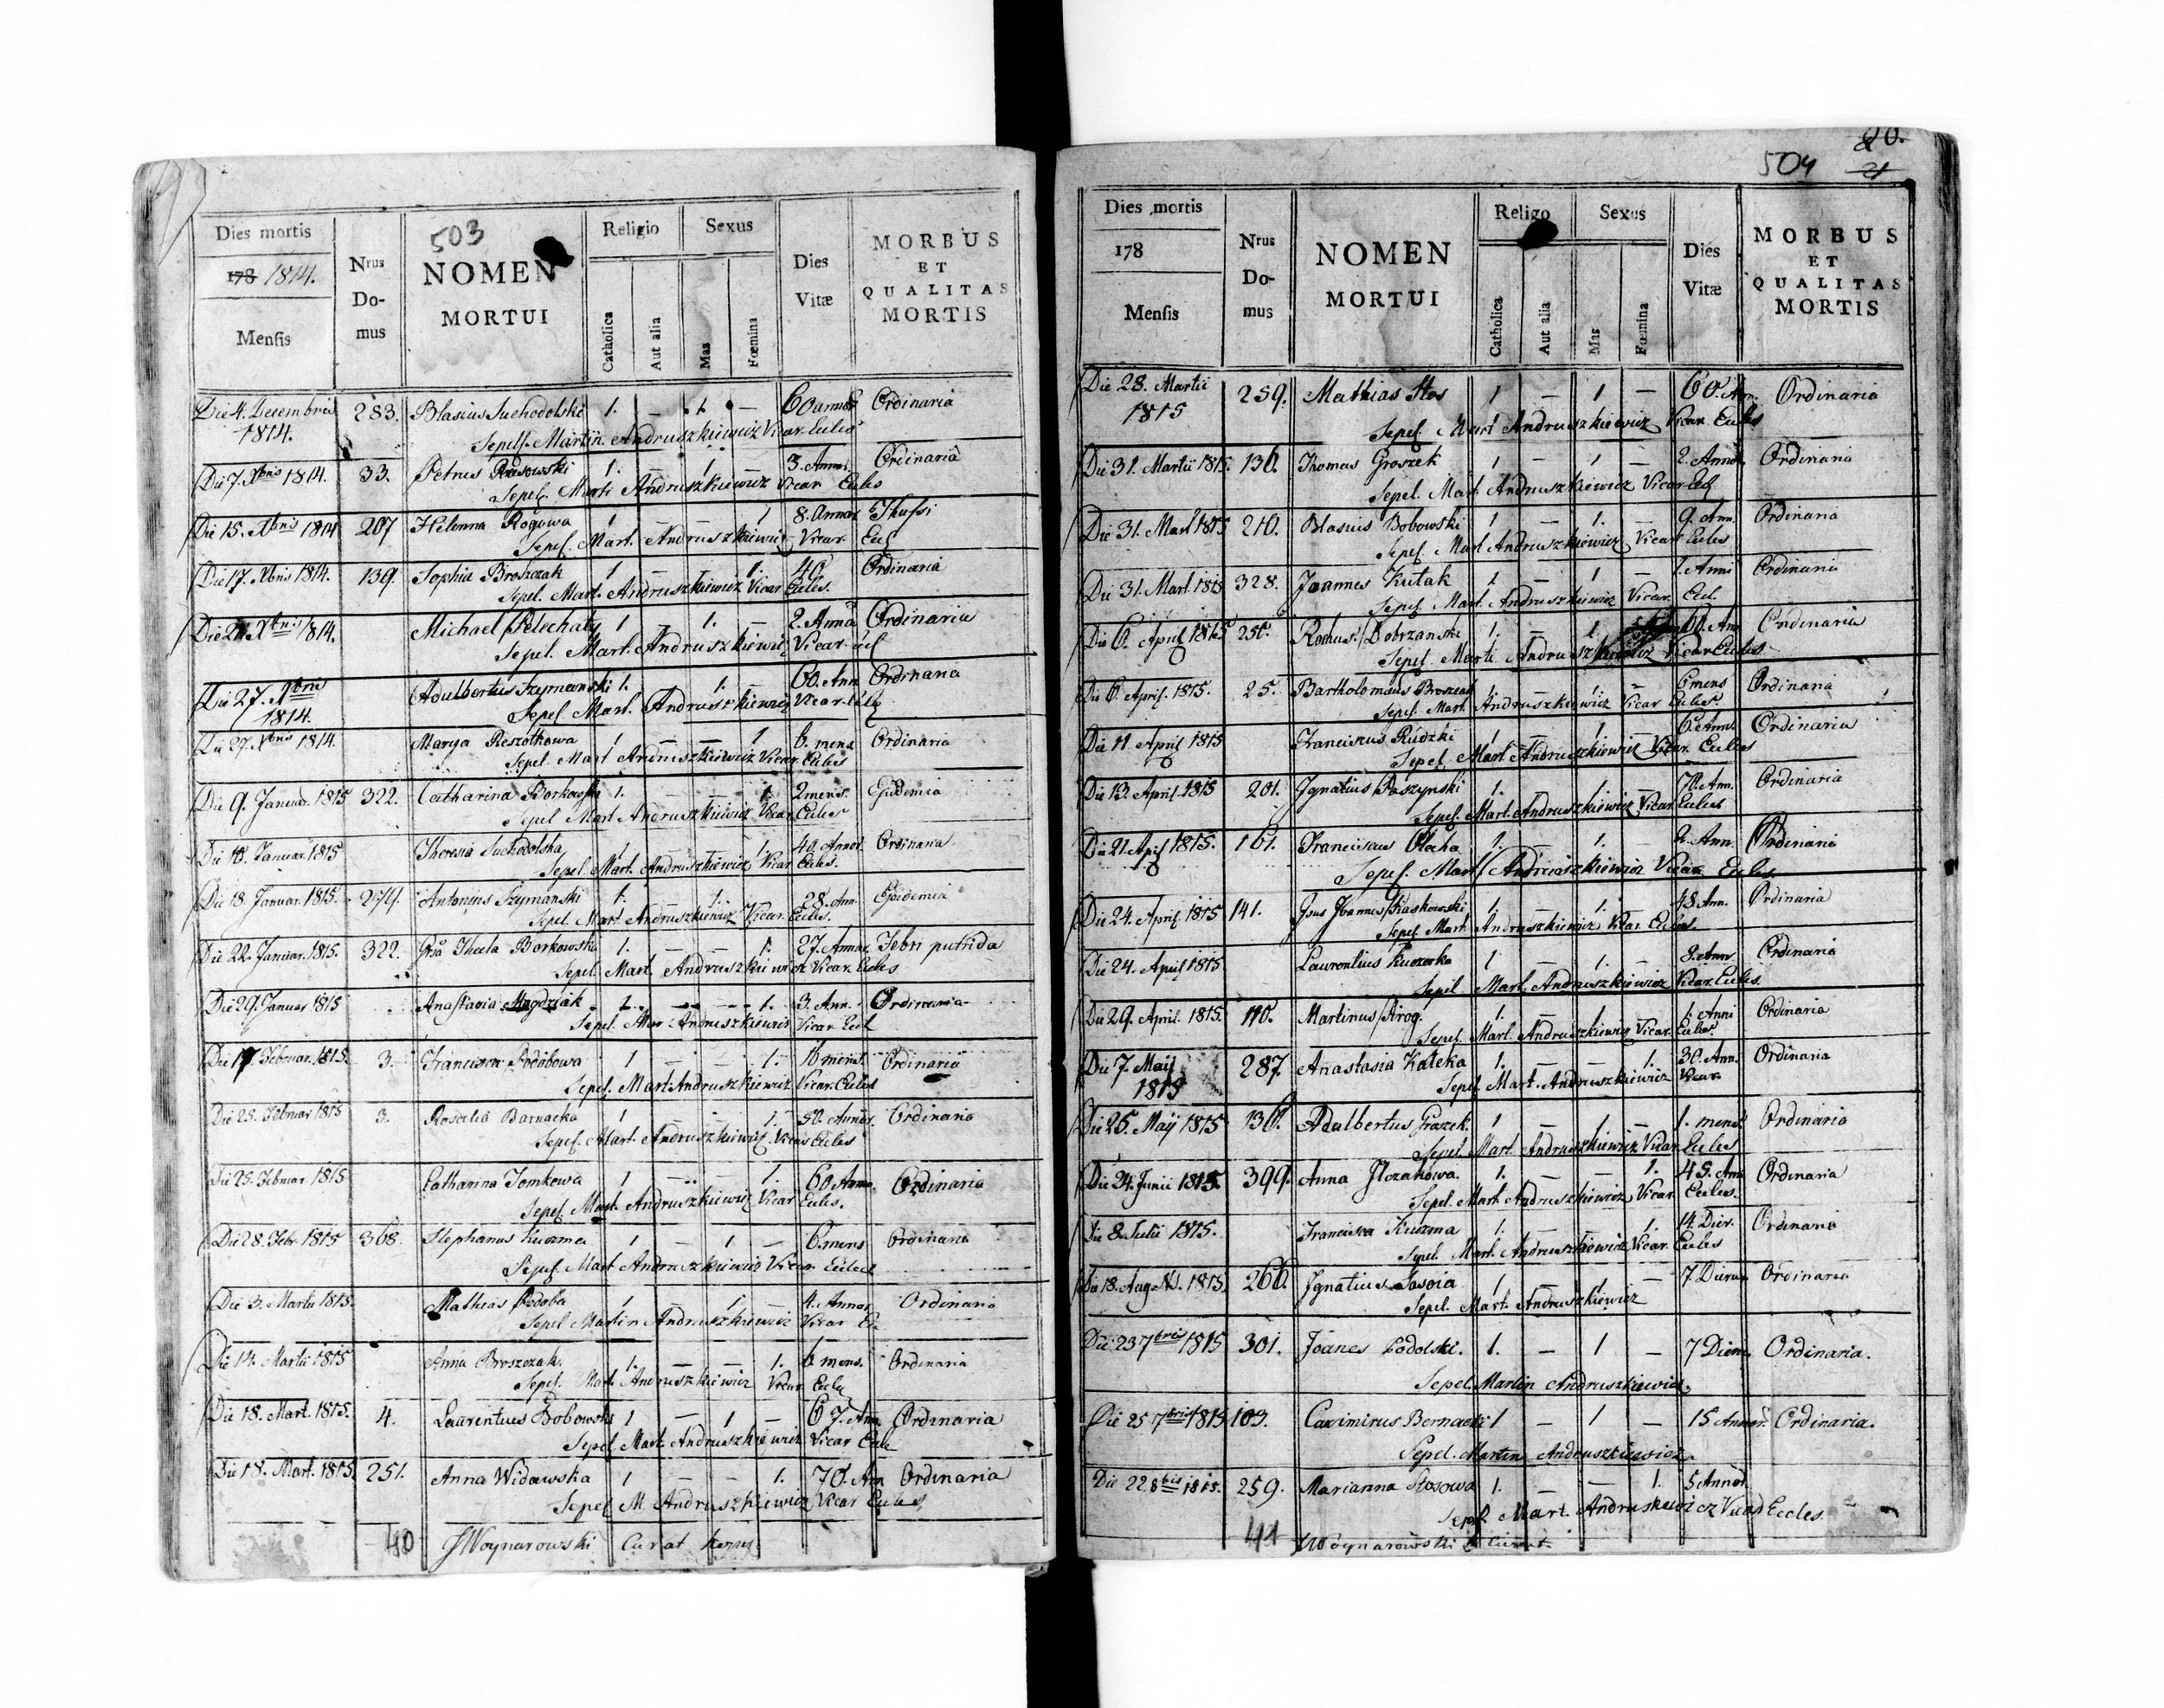 503
Dies mortis
178 1814.
Mensis
Nrus Do-mus
NOMEN MORTUI
Religio
Catholica
Aut alia
Sexus
Mas
Fœmina
Dies Vitæ
MORBUS ET QUALITAS MORTIS
Die 4. Decembris 1814. 283. Blasius Suchodolski 1. — 1. — 60 annor Ordinaria
Sepel. Martin Andruszkiewicz Vicar. Eccles
Die 7. Xbris 1814. 33. Petrus 1. — 1. — 3. Annor. Ordinaria
Sepel. Marti Andruszkiewicz Vicar Eccles
Die 15. Xbris 1814 207 Helenna Rogowa 1 — — 1 8. Annor Thussi
Sepel. Mart. Andruszkiewicz Vicar. Ecl
Die 17. Xbris 1814. 139. Sophia Broszczak 1 — — 1. 40 Ordinaria
Sepel. Mart. Andruszkiewicz Vicar Eccles.
Xbris 1814. Michael Pelechaty 1 — 1. — 2. Anno Ordinaria
Sepel. Mart. Andruszkiewicz Vicar. Ecl
Die 27. Xbris 1814. Adulbertus Szymanski 1. 1. — 60. Ann Ordinaria
Sepel. Mart. Andruszkiewicz Vicar. Ecle
Die 27. Xbris 1814. Marya Reszotkowa 1 — — 1 6. mens Ordinaria
Sepel. Mart Andruszkiewicz Vicar. Eccles
Die 9. Januar. 1815 322. Catharina Borkowska 1. — — 1. 2 mens. Epidemia
Sepel Mart Andruszkiewicz Vicar. Eccles
Januar. 1815 Theresia Suchodolska 1 — — 1. 40. Annor. Ordinaria
Sepel. Mart. Andruszkiewicz Vicar Eccles.
Die 18. Januar. 1815. 274. Antonius Szymanski 1. — 1. — 28. Ann. Epidemia
Sepel. Mart Andruszkiewicz Vicar. Eccles.
Die 22. Januar. 1815. 322. Thecla Borkowska 1. — — 1. 27. Annor. Febri putrida
Sepel. Mart. Andruszkiewicz Vicar. Eccles
Die 29. Januar 1815 Anastasia Magdziak 1. — — 1. 3. Ann. Ordinaria
Sepel. Mar Andruszkiewicz Vicar. Eccl
Die 17. Februar. 1815. 3. Francisca Podobowa 1 — — 1. 16 mens. Ordinaria
Sepel. Mart Andruszkiewicz Vicar. Eccles
Die 25. Februar 1815 3. Rosalia Barnacka 1 — — 1. 50. Annor. Ordinaria
Sepel. Mart. Andruszkiewicz Vicar Eccles
Die 25. Februar 1815 Catharina Tomkowa 1 — — 1. 60 Anno. Ordinaria
Sepel. Mart. Andruszkiewicz Vicar Eccles.
Die 28. Febr. 1815 368. Stephanus Kuzma 1 — 1 — 6. mens Ordinaria
Sepel. Mart Andruszkiewicz Vicar. Eccles
Die 3. Martii 1815. Mathias Podoba 1 — 1. — 4. Annor Ordinaria
Sepel Martin Andruszkiewicz Vicar Ec
Die 14. Martii 1815 Anna Broszczak. 1. — — 1. 6 mens. Ordinaria
Sepel. Mart. Andruszkiewicz Vicar Eccles
Die 18. Mart. 1815. 4. Laurentius Bobowski 1 — 1 — 67. Ann. Ordinaria
Sepel. Mart. Andruszkiewicz Vicar Eccle
Die 18. Mart. 1815. 251. Anna Widawska 1 — — 1. 70. Ann Ordinaria
Sepel M. Andruszkiewicz Vicar Eccles
40 JWoynarowski Curat
504
Dies mortis
178
Mensis
Nrus Do-mus
NOMEN MORTUI
Religo
Catholica
Aut alia
Sexus
Mas
Fœmina
Dies Vitæ
MORBUS ET QUALITAS MORTIS
Die 28. Martii 1815 259. Mathias Stos 1 — 1 — 60. Ann. Ordinaria
Sepel. Mart Andruszkiewicz Vicar. Eccles
Die 31. Martii 1815. 136. Thomas Groszek 1 — 1 — 2. Annor. Ordinaria
Sepel. Mart. Andruszkiewicz Vicar. Ecl
Die 31. Mart 1815 210. Blasius Bobowski 1 — 1. — 9. Ann. Ordinaria
Sepel. Mart Andruszkiewicz Vicar Eccles
Die 31. Mart. 1815 328. Joannes Kutak 1 — 1 — 1. Anni Ordinaria
Sepel. Mart. Andruszkiewicz Vicar. Eccl.
Die 6. April 1815 Rochus Dobrzanski 1. — 1. 60. Ann Ordinaria
Sepel. Marti. Andruszkiewicz Vicar Eccles
Die 6. April. 1815. 25. Bartholomaus 1. — 1. — 6 mens Ordinaria
Sepel. Mart. Andruszkiewicz Vicar Eccles.
Die 11. April 1815 Franciscus Rudzki 1 — 1. — 6. Anno. Ordinaria
Sepel. Mart. Andruszkiewicz Vicar. Eccles
Die 13. April. 1815 201. Ignatius Paszynski 1. — 1. — 70. Ann. Ordinaria
Sepel. Mart. Andruszkiewicz Vicar Eccles
Die 21. April 1815. 161. Franciscus 1. — 1. — 2. Ann. Ordinaria
Sepel. Mart Andruszkiewicz Vicar Eccles.
Die 24. April. 1815 141. Joannes 1. — 1. — 48. Ann. Ordinaria
Sepel. Mart. Andruszkiewicz Vicar. Eccles.
Die 24. April 1815 Laurentius 1 — 1. — Ann. Ordinaria
Sepel Mart. Andruszkiewicz Vicar. Eccles.
Die 29. April. 1815. 110. Martinus Srog. 1. — 1. — 1. Anni Ordinaria
Sepel. Mart. Andruszkiewicz Vicar. Eccles.
Die 7. Maij 1815 287. Anastasia Kaleka 1. — — 1. 30. Ann. Ordinaria
Sepel. Mart. Andruszkiewicz Vicar
Die 25. Maij 1815 136. Adalbertus Groszek. 1 — 1 — 1. mens. Ordinaria
Sepel. Mart. Andruszkiewicz Vicar Eccles
Die 24. Junii 1815. 399. Anna 1. — — 1. 45. Ann Ordinaria
Sepel. Mart. Andruszkiewicz Vicar. Eccles.
Die 8. Julii 1815. Francisca Kuzma 1. — — 1. 14. Dier. Ordinaria
Sepel. Mart. Andruszkiewicz Vicar. Eccles
Die 18. Augusti. 1815. 266. Ignatius Sasoia 1 — 1 — 7. Dierum Ordinaria
Sepel. Mart. Andruszkiewicz
Die 23 7bris 1815 301. Joanes Podolski. 1. — 1 — 7 Dierum Ordinaria.
Sepel. Martin Andruszkiewicz.
Die 25 7bris 1815 103. Casimirus Bernacki 1 — 1 — 15 Annor. Ordinaria.
Sepel. Martin Andruszkiewicz
Die 22 8bris 1815. 259. Marianna Stosowa 1. — — 1. 5 Annor.
Sepel. Mart. Andruskiewicz Vicar Eccles.
41 JWoynarowski Curat.